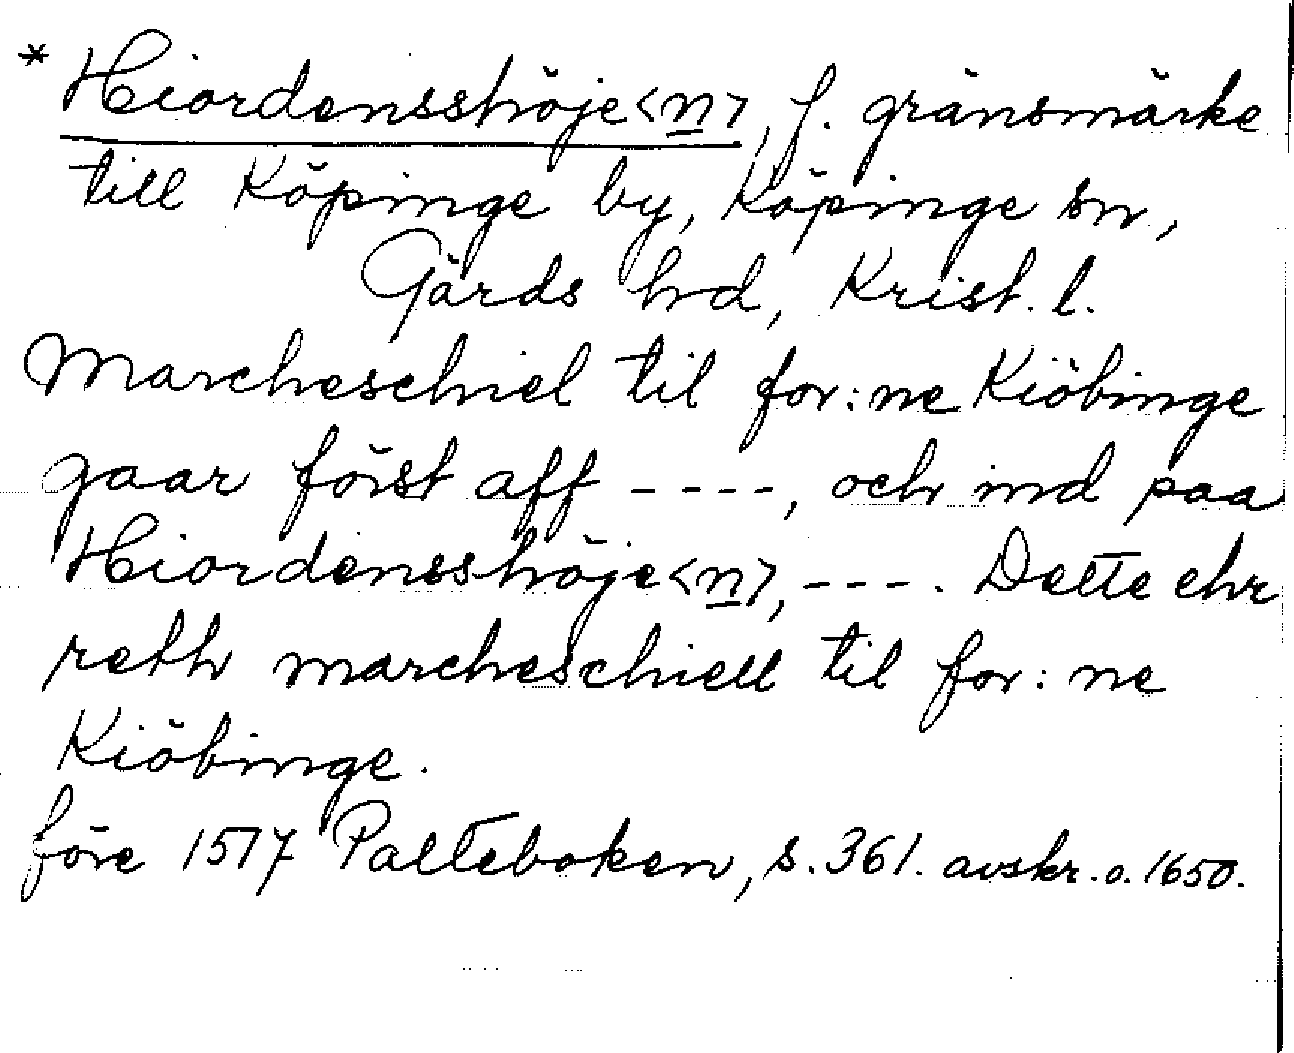 * Hiordensshöje<n>, f. gränsmärke
till Köpinge by, Köpinge sn,
Gärds hd, Krist. l.
Marcheschiel til for:ne Kiöbinge
gaar först aff ----, och ind paa
Hiordensshöje<n>, ---. Dette ehr
reth marcheschiell til for:ne
Kiöbinge.
före 1517 Palteboken, s. 361. avskr. o. 1650.